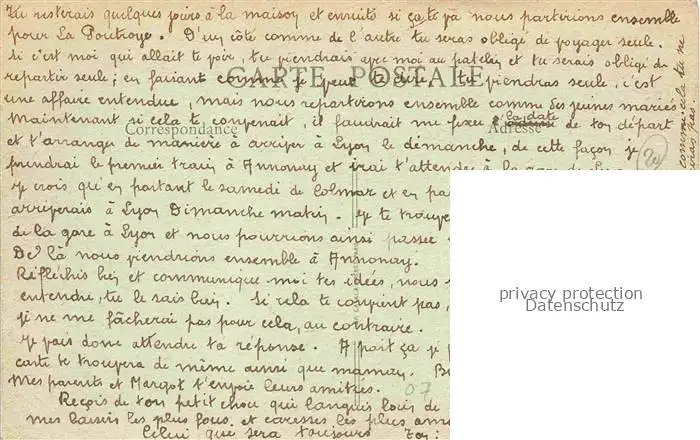 Tu resterais quelques jours à la maison et ensuite si ça te va nous partirions ensemble
pour La Poutroye. D'un côté comme de l'autre tu seras obligé de voyager seule.
Si c'est moi qui allait te voir, tu viendrais avec moi au patelin et tu serais obligé de
repartir seule; en faisant comme je veux tu viendras seule, c'est
CARTE POSTALE
une affaire entendue, mais nous repartirons ensemble comme des jeunes mariés
Maintenant si cela te convenait, il faudrait me fixer la date de ton départ
Correspondance
Adresse
et t'arranger de manière à arriver à Lyon le démanche, de cette façon je
prendrai le premier train à Annonay et irai t'attendre à la gare de
Je crois qu'en partant le samedi de Colmar et en
arriverais à Lyon Dimanche matin. Je te
de la gare à Lyon et nous pourrions ainsi passer
De là nous viendrions ensemble à Annonay.
Réfléchis bien et communique moi tes idées, nous
entendre, tu le sais bien. Si cela te convient pas,
je ne me fâcherai pas pour cela, au contraire.
Je vais donc attendre ta réponse. A part ça je
carte te trouvera de même ainsi que maman.
Mes parents et Margot t'envoie leurs amitiés.
07
Reçois de ton petit chou qui languis loin de
mes baisers les plus fous et caresses les plus
Celui que sera toujours Ton:
comme cela tu ne
privacy protection
Datenschutz